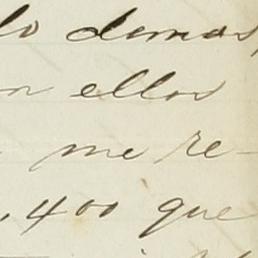 lo demas,
n ellos
me re-
,400 que